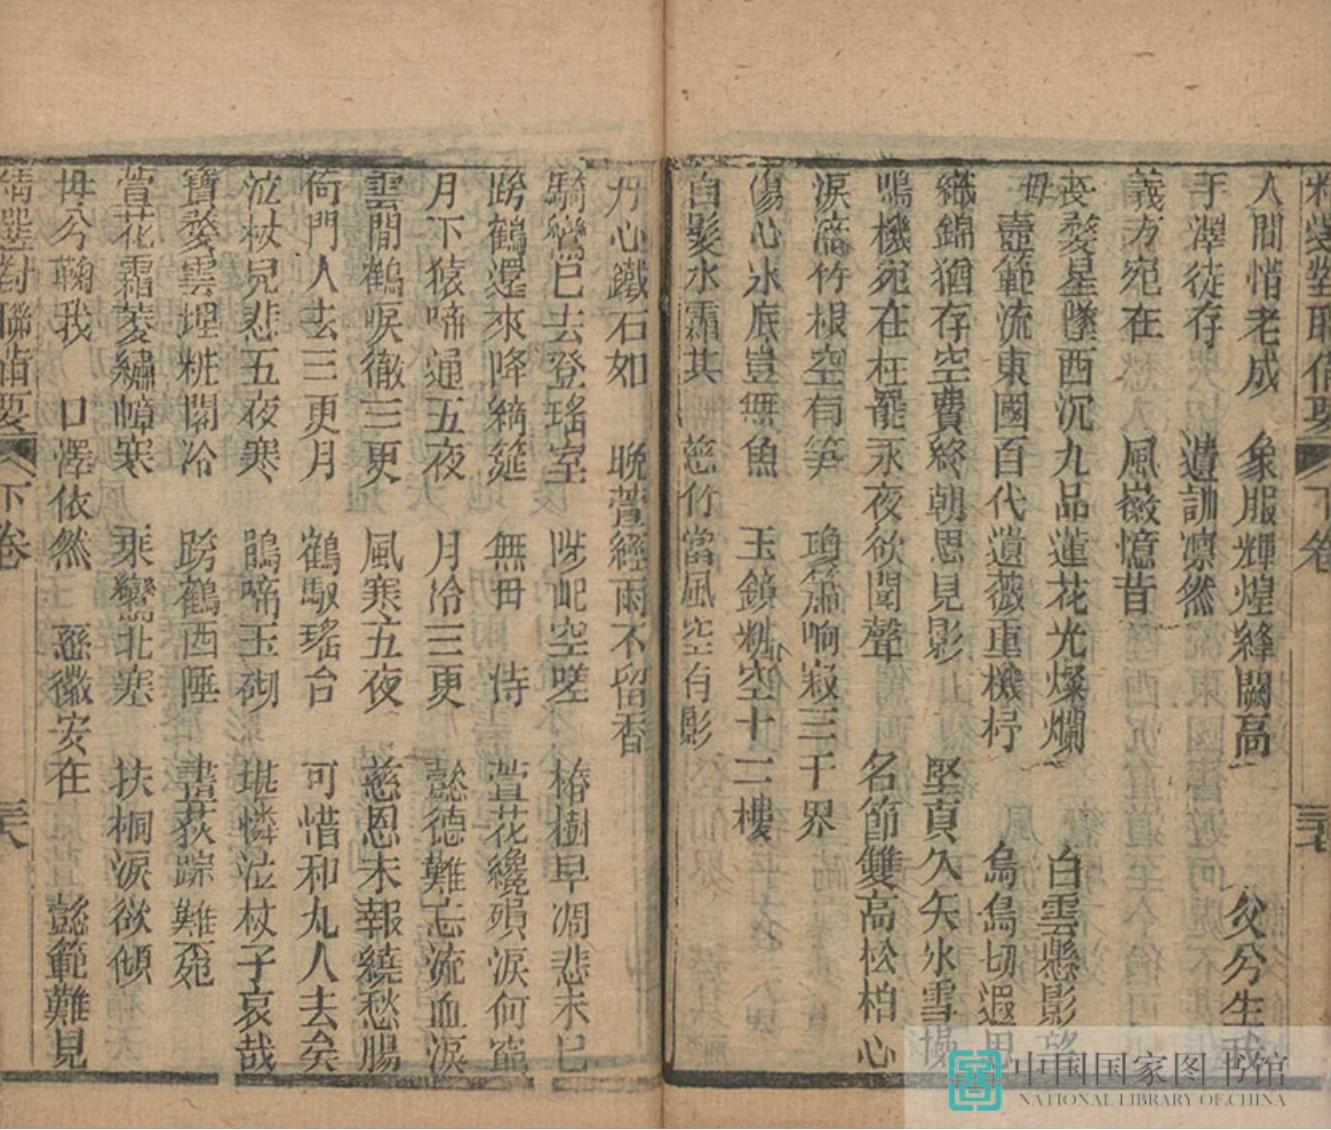 精選對聯備要 下卷
人間惜老成 象服輝煌絳闕高 父兮生我
手澤徒存 遺訓凛然
義方宛在 風徽憶昔
母
喪婺星墜西沉九品蓮花光燦爛 白雲懸影望
壼範流東國百代遺薇重機杼 烏鳥切遐思
織錦猶存空費終朝思見影 堅貞久矢氷雪操
鳴機宛在枉罷永夜欲聞聲 名節雙高松柏心
淚滴竹根空有笋 瓊簫响寂三千界
傷心氷底豈無魚 玉鏡粧空十二樓
白髮氷霜其 慈竹當風空有影
丹心鐵石如 晩萱經雨不留香
騎鸞已去登瑤室 陟屺空嗟 椿樹早凋悲未已
跨鶴還來降綺筵 無母 恃 萱花纔殞淚何窮
月下猿啼通五夜 月冷三更 懿德難忘流血淚
雲間鶴唳徹三更 風寒五夜 慈恩未報繞愁腸
倚門人去三更月 鶴馭瑤台 可惜和丸人去矣
泣杖兒悲五夜寒 鵑啼玉砌 堪憐泣杖子哀哉
寶婺雲埋粧閣冷 跨鶴西陲 畫荻踪難覓
萱花霜萎繡幛寒 乘鸞北塞 扶桐淚欲傾
母兮鞠我 口澤依然 慈徽安在 懿範難見
精選對聯備要 下卷
中国国家图书馆
NATIONAL LIBRARY OF CHINA